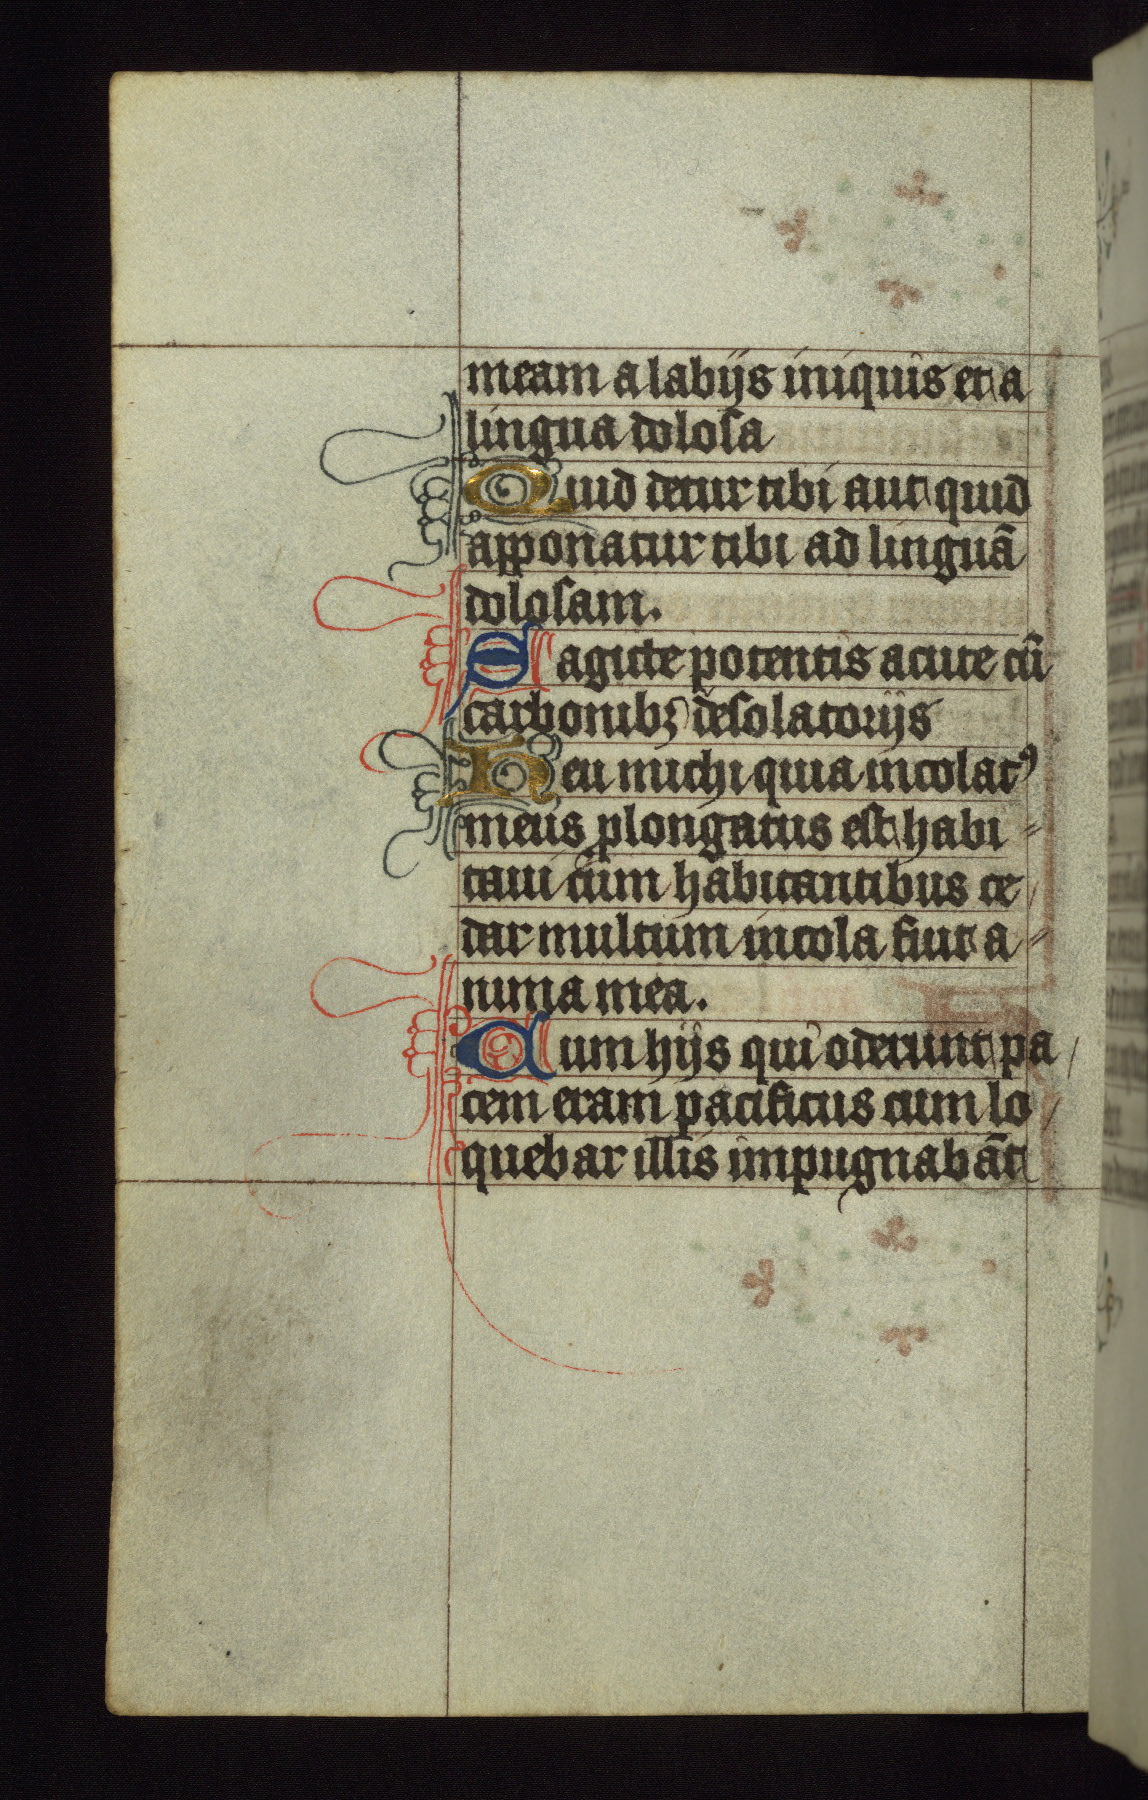 meam a labijs iniquis et a
lingua dolosa
Quid detur tibi aut quid
apponatur tibi ad linguā
dolosam.
Sagitte potentis acute cū
carbonibꝫ desolatorijs
Heu michi quia incolatꝰ
meus ꝓlongatus est habi
taui cum habitantibus ce
dar multum incola fuit a
nima mea.
Cum hijs qui oderunt pa
cem eram pacificus cum lo
quebar illis impugnabāt